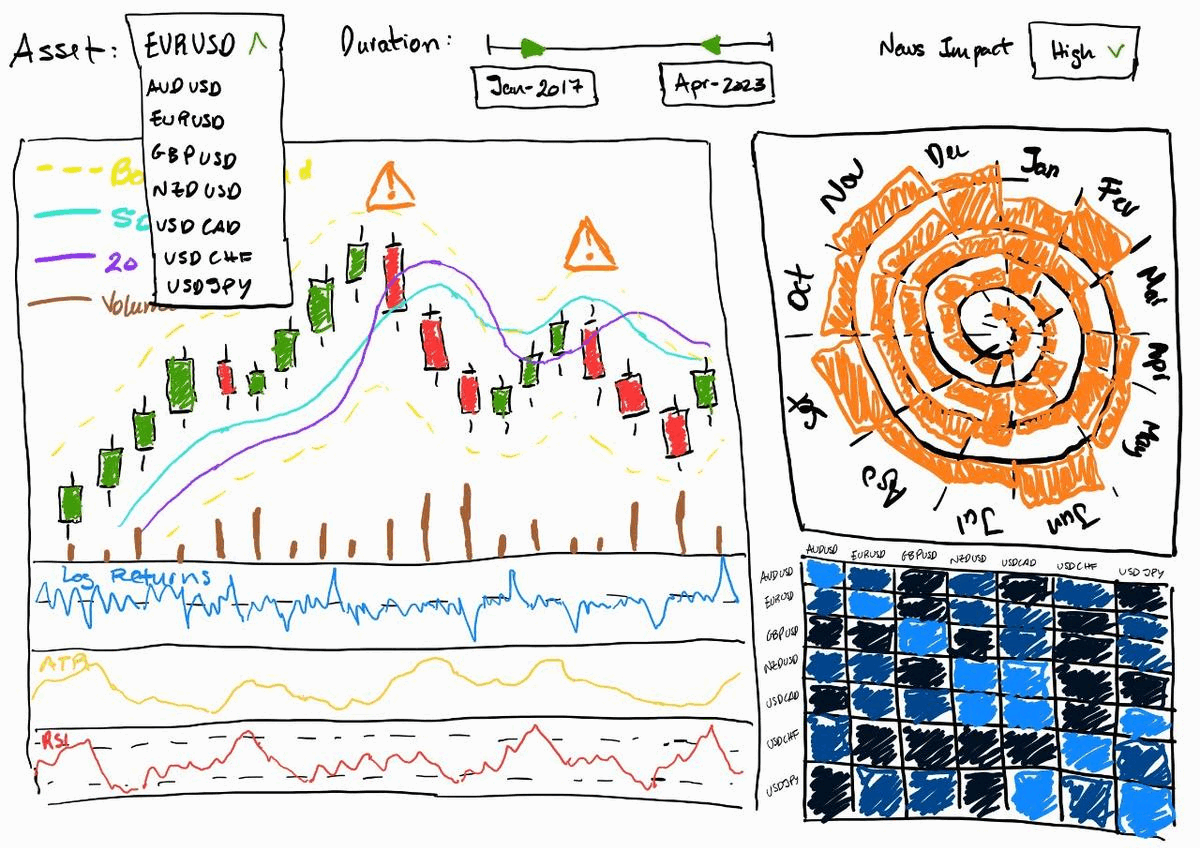 Asset:
EURUSD
AUDUSD
EURUSD
GBPUSD
NZDUSD
USDCAD
USDCHF
USDJPY
Duration:
Jan-2017
Apr-2023
News Impact
High
20
Log Returns
ATR
RSI
Jan
Fev
Mar
Apr
May
Jun
Jul
Oct
Nov
Dec
AUDUSD EURUSD GBPUSD NZDUSD USDCAD USDCHF USDJPY
AUDUSD
EURUSD
GBPUSD
NZDUSD
USDCAD
USDCHF
USDJPY